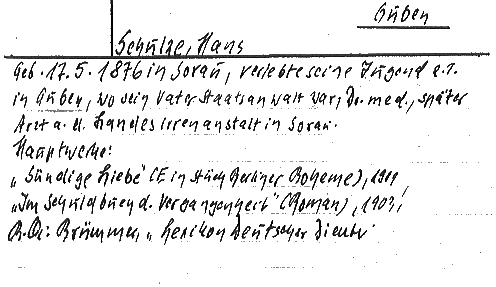 Guben
Schulze, Hans
Geb. 17.5.1876 in Sorau, verlebte seine Jugend z.T.
in Guben, wo sein Vater Staatsanwalt war, Dr. med., später
Arzt a. d. Landesirrenanstalt in Sorau.
Hauptwerke:
"Sündige Liebe" (Ein Stück Berliner Boheme), 1901
"Im Schuldbuch d. Vergangenheit" (Roman), 1903,
Brümmer, "Lexikon deutscher Dichter"